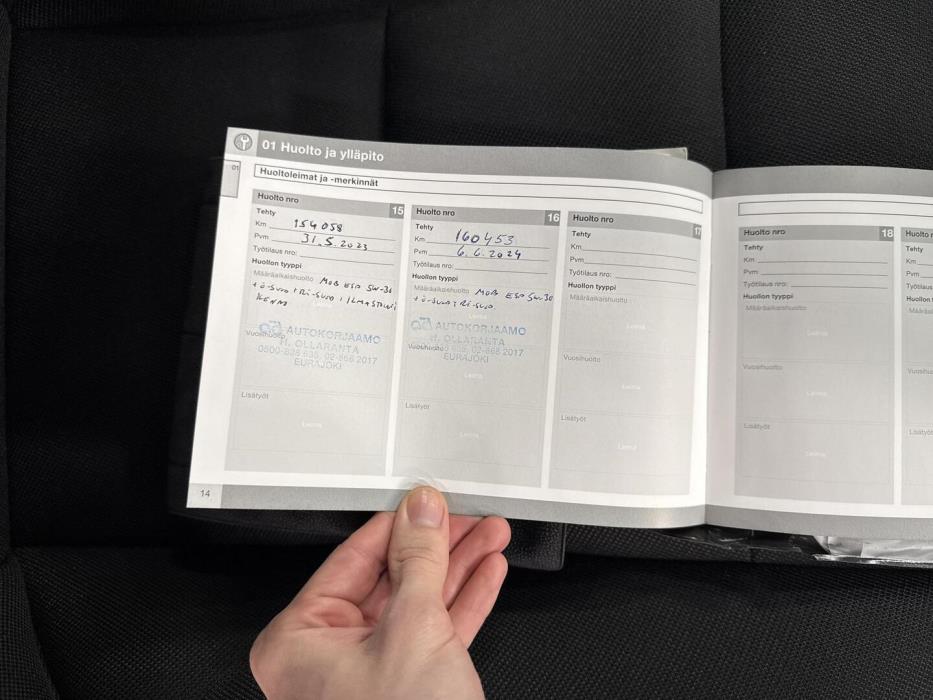 01 Huolto ja ylläpito
01
Huoltoleimat ja -merkinnät
Huolto nro 15
Tehty
Km 154 058
Pvm 31.5.2023
Työtilaus nro:
Huollon tyyppi
Määräaikaishuolto MOB ESP 5W-30
+ ö-suod + RI-suod + ILMASTOINI
Vuosihuolto
AUTOKORJAAMO
H. OLLARANTA
0500-828 635, 02-868 2017
EURAJOKI
Lisätyöt
Leima
Huolto nro 16
Tehty
Km 160 453
Pvm 6.6.2024
Työtilaus nro:
Huollon tyyppi
Määräaikaishuolto MOB ESP 5W-30
+ ö-suod + RI-suod.
Leima
AUTOKORJAAMO
H. OLLARANTA
Vuosihuolto 02-868 2017
EURAJOKI
Leima
Lisätyöt
Leima
Huolto nro 17
Tehty
Km
Pvm
Työtilaus nro:
Huollon tyyppi
Määräaikaishuolto
Leima
Vuosihuolto
Leima
Lisätyöt
Leima
14
Huolto nro 18
Tehty
Km
Pvm
Työtilaus nro:
Huollon tyyppi
Määräaikaishuolto
Leima
Vuosihuolto
Leima
Lisätyöt
Leima
Huolto
Tehty
Km
Pvm
Työtilaus
Huollon
Lisätyöt